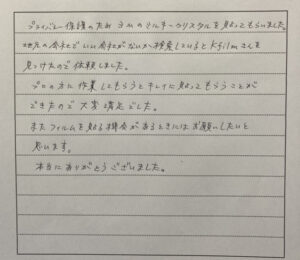 プライバシー保護のため3Mのミルキークリスタルを貼ってもらいました。
地元の会社でいい会社がないか検索しているとKfilmさんを
見つけたので依頼しました。
プロの方に作業してもらうとキレイに貼ってもらうことが
できたので大変満足でした。
またフィルムを貼る機会があるときにはお願いしたいと
思います。
本当にありがとうございました。